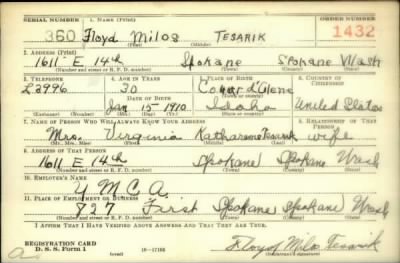 SERIAL NUMBER 1. NAME (Print) ORDER NUMBER
360 Floyd Milos Tesarik 1432
(First) (Middle) (Last)
2. ADDRESS (Print)
1611 E 14th Spokane Spokane Wash
(Number and street or R. F. D. number) (Town) (County) (State)
3. TELEPHONE 4. AGE IN YEARS 5. PLACE OF BIRTH 6. COUNTRY OF CITIZENSHIP
L3996 30 Coeur d'Alene
DATE OF BIRTH
Jan 15 1910 Idaho United States
(Exchange) (Number) (Mo.) (Day) (Yr.) (State or country)
7. NAME OF PERSON WHO WILL ALWAYS KNOW YOUR ADDRESS 8. RELATIONSHIP OF THAT PERSON
Mrs. Virginia Katharene Tesarik wife
(Mr., Mrs., Miss) (First) (Middle) (Last)
9. ADDRESS OF THAT PERSON
1611 E 14th Spokane Spokane Wash
(Number and street or R. F. D. number) (Town) (County) (State)
10. EMPLOYER'S NAME
Y.M.C.A.
11. PLACE OF EMPLOYMENT OR BUSINESS
827 First Spokane Spokane Wash
(Number and street or R. F. D. number) (Town) (County) (State)
I AFFIRM THAT I HAVE VERIFIED ABOVE ANSWERS AND THAT THEY ARE TRUE.
REGISTRATION CARD
D. S. S. Form 1 (over) Floyd Milos Tesarik